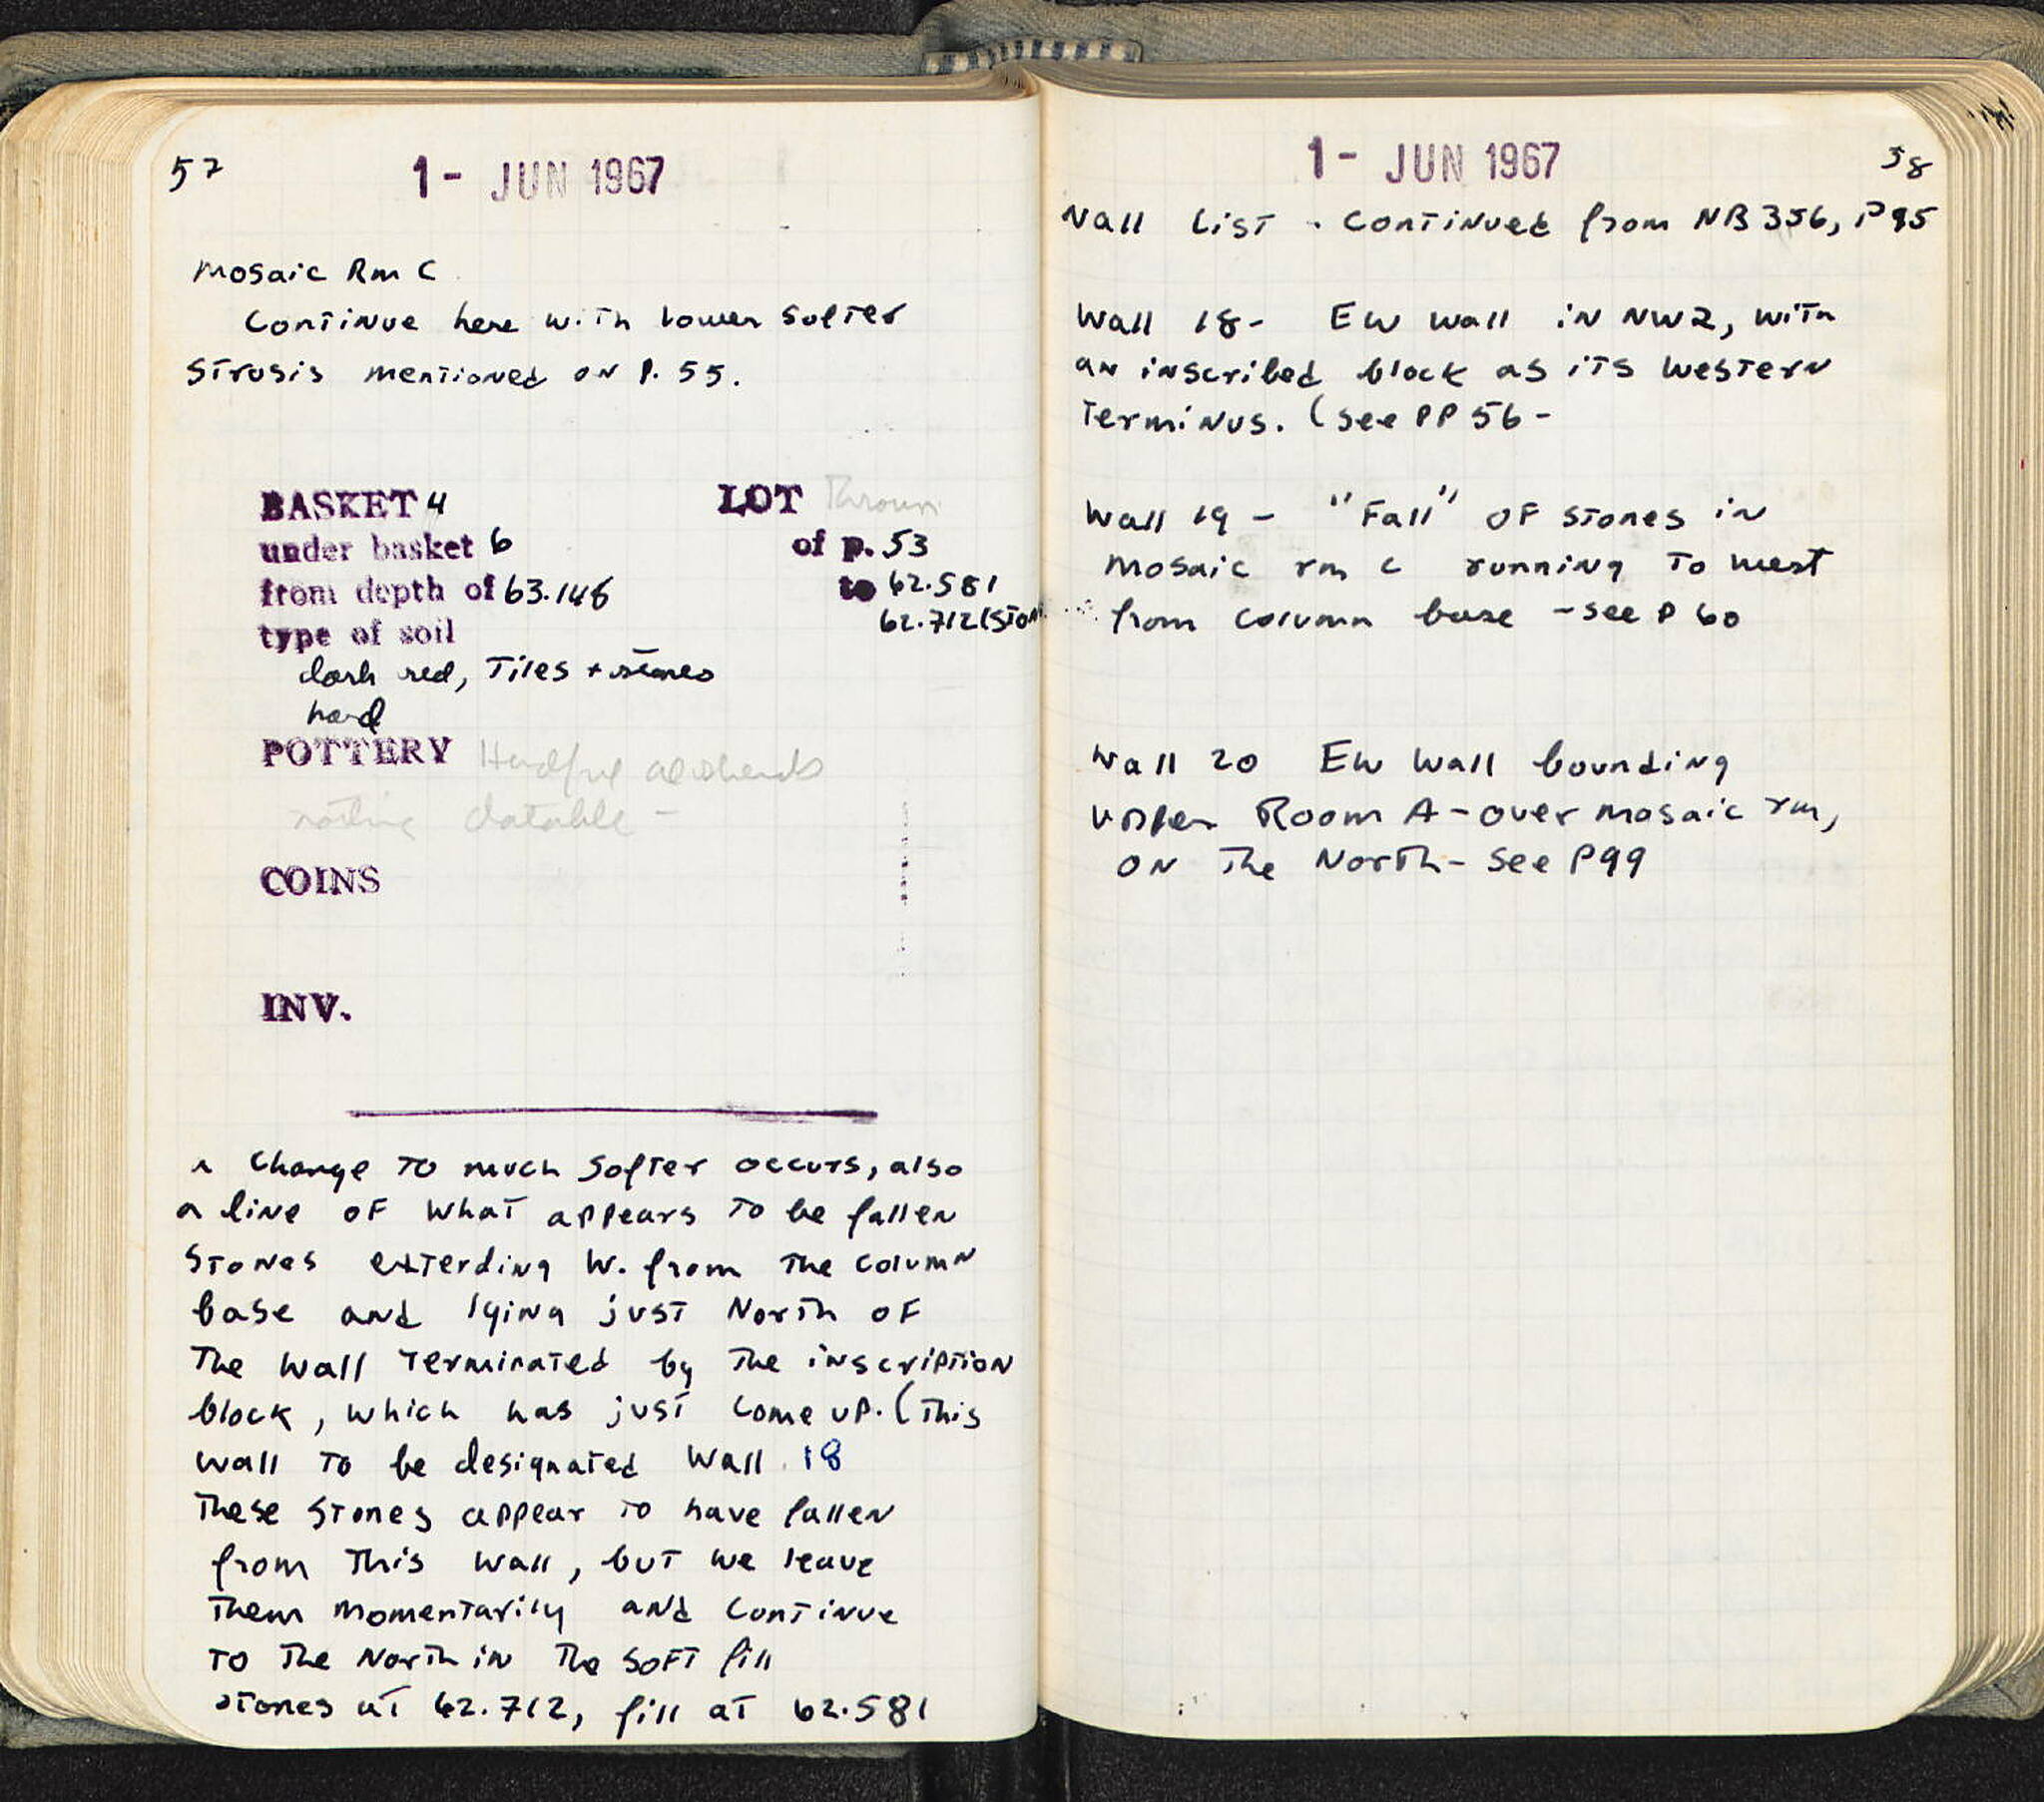 57
1 - JUN 1967
Mosaic Rm C
Continue here with lower softer
strosis mentioned on P. 55.
BASKET 4 LOT Thrown
under basket 6 of p. 53
from depth of 63.146 to 62.581
62.712 (Ston
type of soil
dark red, Tiles + stones
hard
POTTERY Handful
nothing datable -
COINS
INV.
A change to much softer occurs, also
a line of what appears to be fallen
stones exterding W. from the column
base and lying just North of
The wall terminated by the inscription
block, which has just come up. (This
wall to be designated Wall 18
These stones appear to have fallen
from this wall, but we leave
them momentarily and continue
to the North in the soft fill
stones at 62.712, fill at 62.581
1 - JUN 1967
58
Wall List. Continued from NB 356, P95
Wall 18 - EW wall in NW2, with
an inscribed block as its western
terminus. (see PP 56 -
Wall 19 - "Fall" of stones in
mosaic rm C running to west
from column base - see P 60
Wall 20 EW wall bounding
upper Room A - over mosaic rm,
on the North - see P99